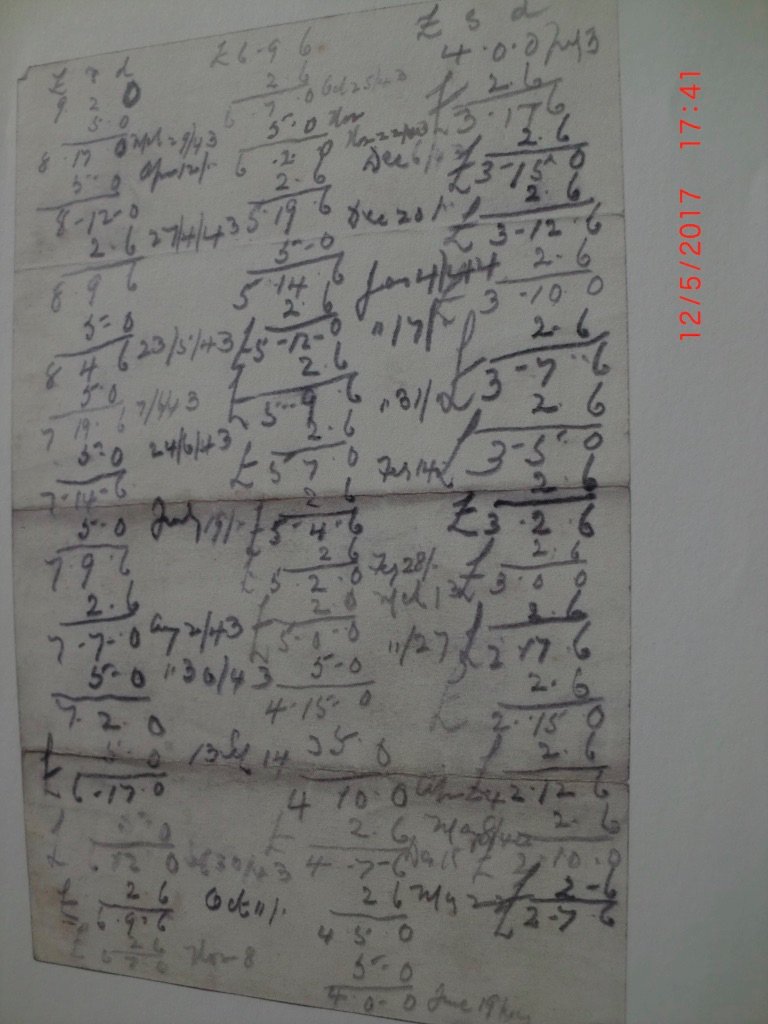 £ s d
9 2 0
5-0
8 17 0
5-0
8-12-0
2-6 27/4/43
8 9 6
5-0
8 4 6 23/5/43
5 0
7 19 6
5-0 24/6/43
7-14-6
5-0 July 19/-
7 9 6
2.6
7-7-0 Aug 2/43
5-0 "30/43
7.2.0
5.0
£6-17-0
5-0
£ 12 0
2 6 Oct 11/-
6-9-6
2 6 Nov 8
£6-9 6
2 6
6 7.0
5-0 Nov
6.2 0
2.6 Dec 6/43
5.19 6 Dec 20/-
5-0
5.14.6
2.6 "17/-
£5-12-0
2.6
£5-9 6 "31/-
2.6
£5 7 0
2 6
£5-4-6
2 6
£5 2.0 Feb 28/-
2 0
£5-0-0 "/27
5-0
4-15-0
5.0
4 10.0
2.6
4-7-6
2 6
4 5 0
5-0
4-0-0 June 19
£ s d
4.0.0
2.6
£3.17 6
2.6
£3-15-0
2.6
£3-12-6
2.6
£3-10 0
2.6
£3-7-6
2.6
£3-5-0
2.6
£3.2.6
2.6
£3 0 0
2.6
£2.17.6
2.6
£2.15.0
2.6
£2.12.6
2.6
£2-10-0
2-6
£2-7-6
12/5/2017 17:41